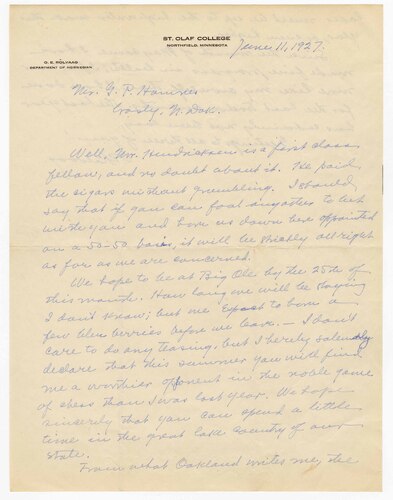 ST. OLAF COLLEGE
NORTHFIELD, MINNESOTA
June 11, 1927.
O. E. ROLVAAG
DEPARTMENT OF NORWEGIAN
Mr. G. P.
Crosby, N. Dak.
Well, Mr. Hendricksen is a first class
fellow, and no doubt about it. He paid
the cigars without grumbling. I should
say that if you can fool another to bet
with you and have us down here appointed
on a 50-50 basis, it will be strictly all right
as far as we are concerned.
We hope to be at Big Ole by the 25th of
this month. How long we will be staying
I don't know; but we expect to have a
few blue berries before we leave. — I don't
care to do any teasing, but I hereby solemnly
declare that this summer you will find
me a worthier opponent in the noble game
of chess than I was last year. We hope
sincerely that you can spend a little
time in the great lake country of our
state.
From what Oakland writes me, the